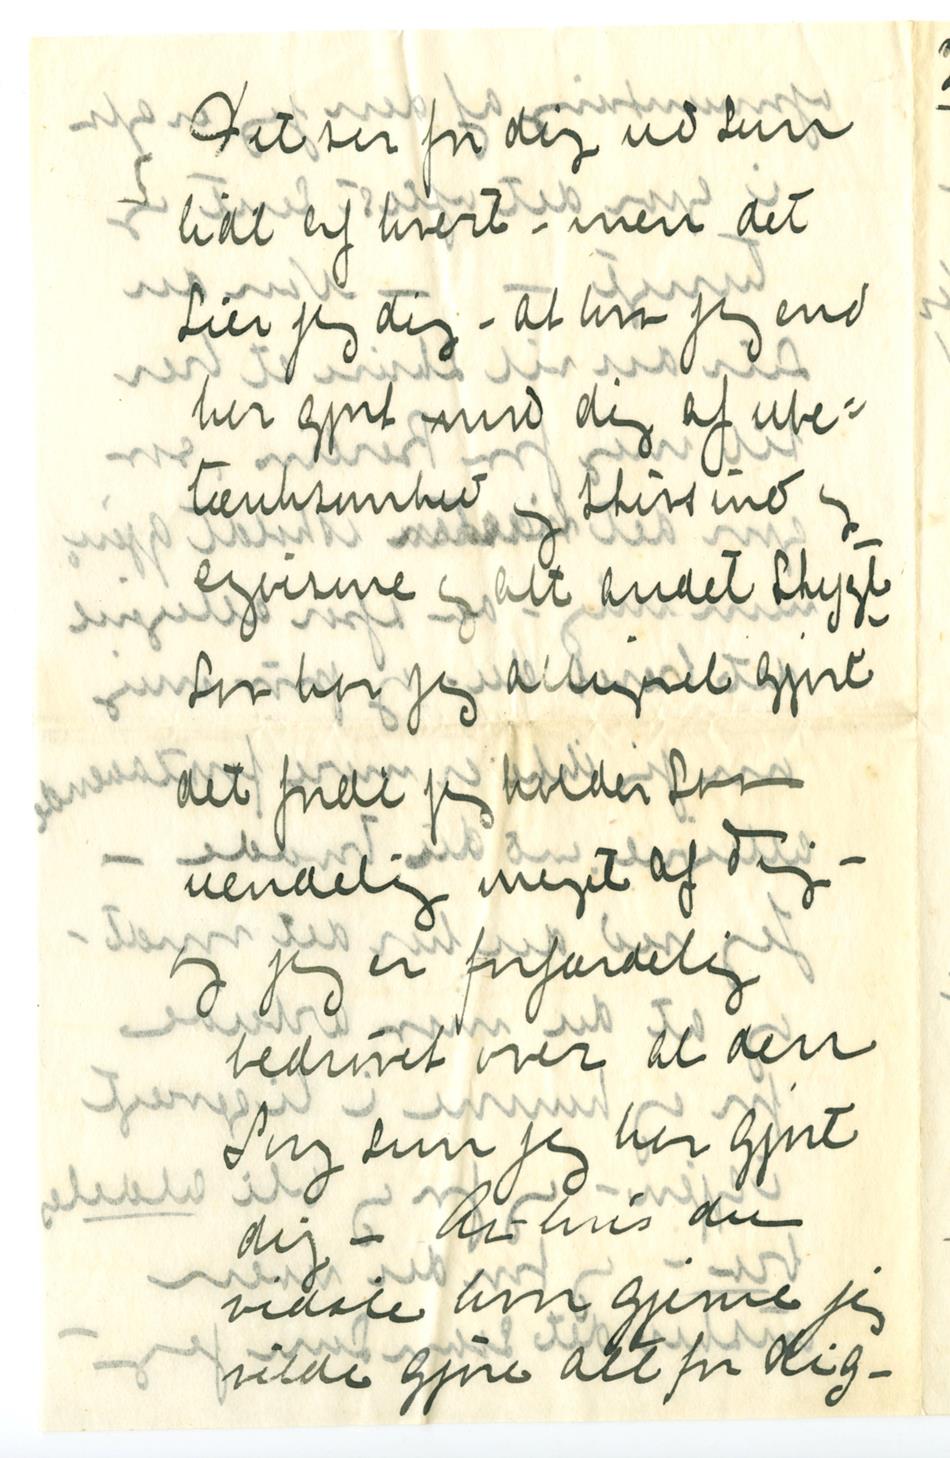 Det ser for dig ud som
lidt af hvert – men det
Sier jeg dig – at hva jeg end
har gjort mod dig af ube=
tænksomhed og Skissind og
egoisme og alt andet Stygt
Saa har jeg alligevel gjort
det fordi jeg holder Saa
uendelig meget af Dig –
og jeg er forfærdelig
bedrøvet over al den
Sorg som jeg har gjort
dig – Aa hvis du
vidste hvor gjerne jeg
vilde gjøre alt for Dig –